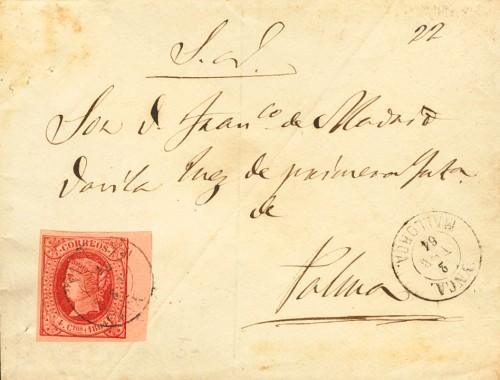 22
S. N.
Sor. D. Franco. de Madrid
Davila Juez de primera Insta.
de
Palma
CORREOS
4 Ctos 1864
INCA.
MALLORCA
64